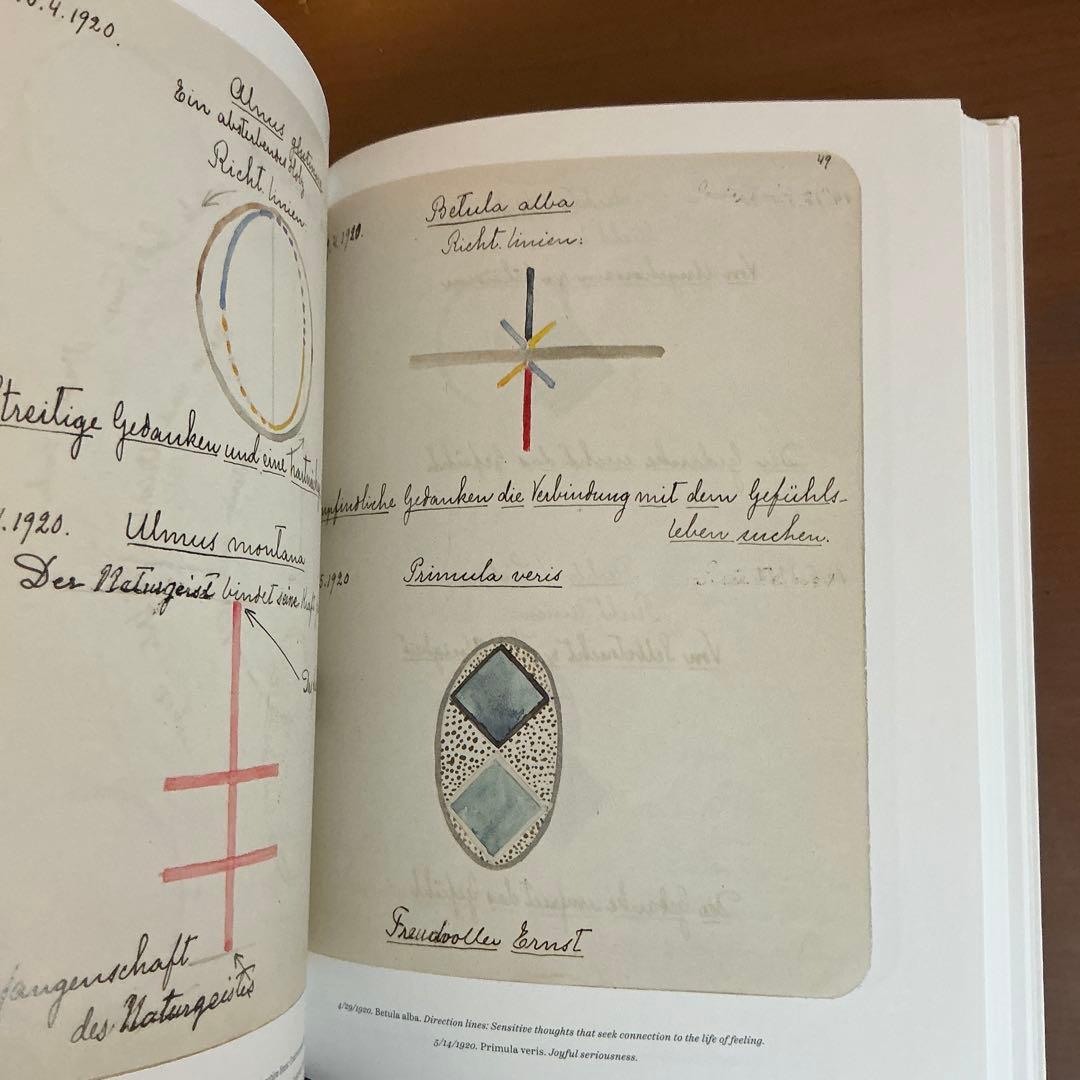 .4.1920.
Alnus
Ein absterbendes Holz
Richt. linien
Streitige Gedanken und eine
.1920.
Ulmus montana
Der Naturgeist bindet seine
fangenschaft
des Naturgeistes
49
.1920.
Betula alba
Richt. linien:
empfindliche Gedanken die Verbindung mit dem Gefühls-
leben suchen.
5.1920
Primula veris
Freudvoller Ernst
4/29/1920. Betula alba. Direction lines: Sensitive thoughts that seek connection to the life of feeling.
5/14/1920. Primula veris. Joyful seriousness.